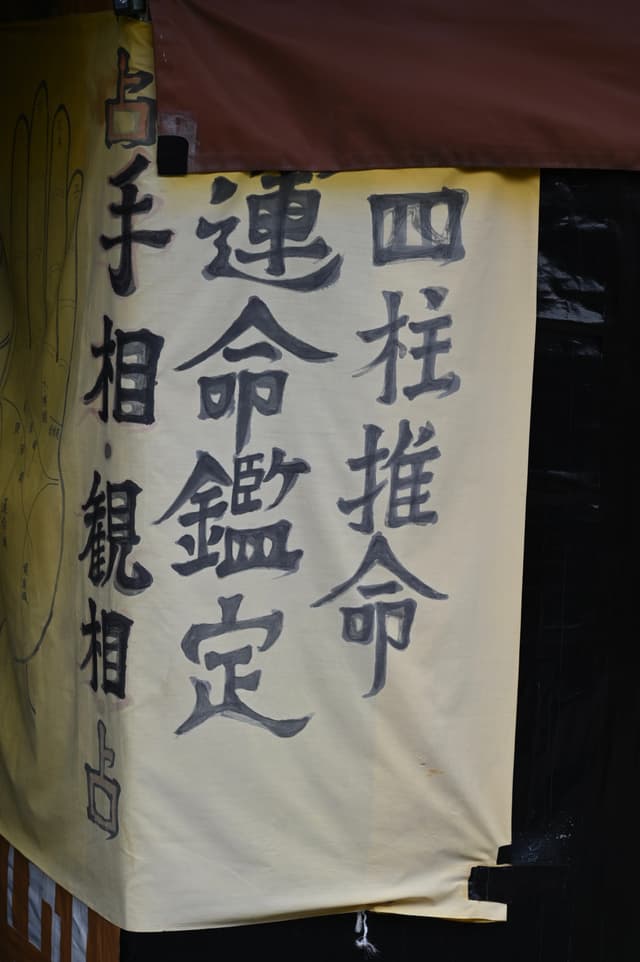 四柱推命
運命鑑定
占手相・観相占